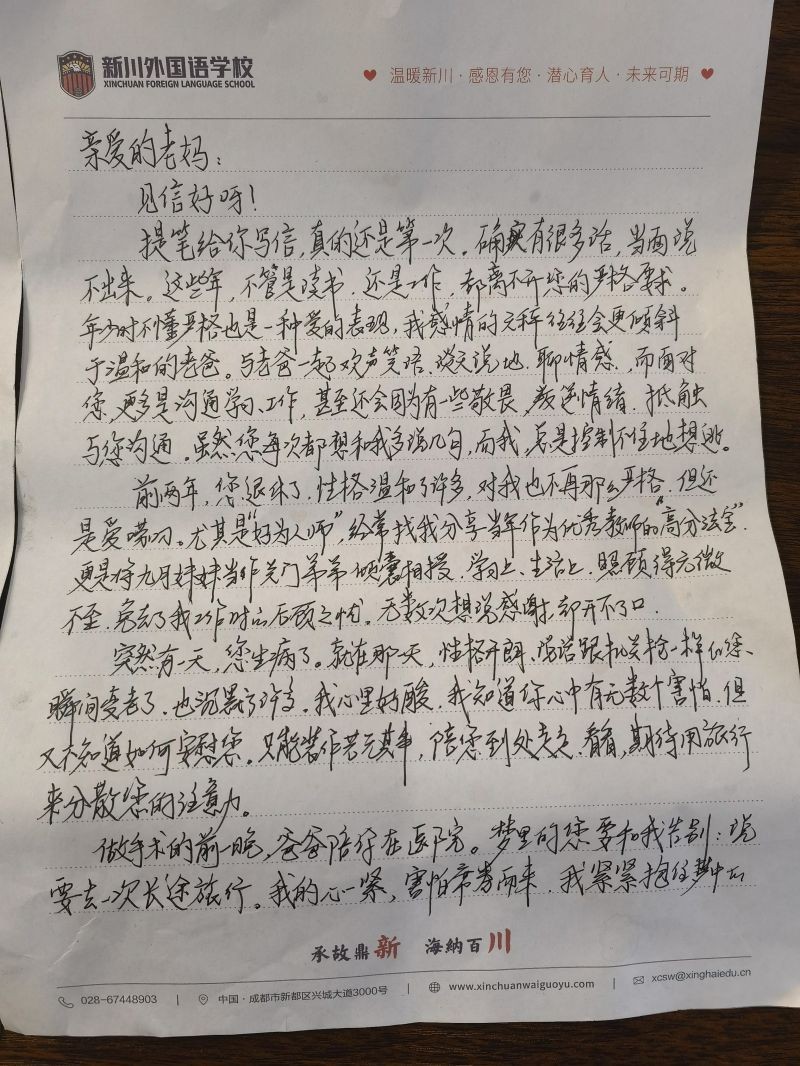 新川外国语学校
XINCHUAN FOREIGN LANGUAGE SCHOOL
温暖新川·感恩有您·潜心育人·未来可期
亲爱的老妈：
见信好呀！
提笔给你写信，真的还是第一次。确实有很多话，当面说
不出来。这些年，不管是读书、还是工作，都离不开您的严格要求。
年少时不懂严格也是一种爱的表现，我感情的天秤往往会更倾斜
于温和的老爸。与老爸一起欢声笑语、谈天说地、聊情感，而面对
您，更多是沟通学习、工作，甚至还会因为有一些敬畏、叛逆情绪，抵触
与您沟通。虽然您每次都想和我多说几句，而我，总是控制不住地想逃。
前两年，您退休了，性格温和了许多，对我也不再那么严格，但还
是爱唠叨。尤其是“好为人师”，经常找我分享当年作为优秀教师的“高分法宝”，
更是将九月妹妹当作关门弟弟倾囊相授，学习上、生活上，照顾得无微
不至，免去了我工作时的后顾之忧。无数次想说感谢，却开不了口。
突然有一天，您生病了。就在那天，性格开朗、说话跟机关枪一样的您、
瞬间变老了，也沉默了许多，我心里好酸，我知道你心中有无数个害怕，但
又不知道如何安慰您。只能装作若无其事，陪您到处走走、看看，期待用旅行
来分散您的注意力。
做手术的前一晚，爸爸陪伴在医院。梦里的您要和我告别：说
要去一次长途旅行。我的心一紧，害怕席卷而来，我紧紧抱住梦中的
承故鼎新 海纳百川
028-67448903 | 中国·成都市新都区兴城大道3000号 | www.xinchuanwaiguoyu.com | xcsw@xinghaiedu.cn